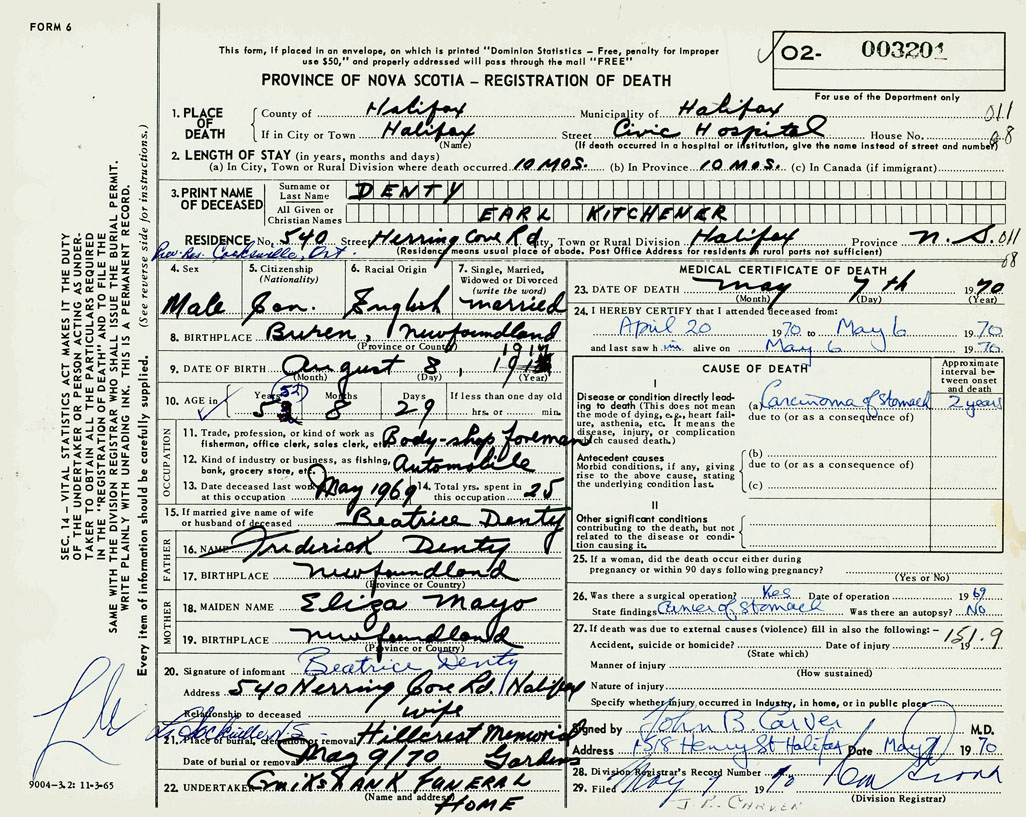 FORM 6
This form, if placed in an envelope, on which is printed "Dominion Statistics – Free, penalty for improper
use $50," and properly addressed will pass through the mail "FREE"
O2- 003201
PROVINCE OF NOVA SCOTIA – REGISTRATION OF DEATH
For use of the Department only
1. PLACE OF DEATH
County of Halifax Municipality of Halifax 011
If in City or Town Halifax Street Civic Hospital House No. 08
(Name) (If death occurred in a hospital or institution, give the name instead of street and number)
2. LENGTH OF STAY (in years, months and days)
(a) In City, Town or Rural Division where death occurred 10 MOS. (b) In Province 10 MOS. (c) In Canada (if immigrant)
3. PRINT NAME OF DECEASED
Surname or Last Name DENTY
All Given or Christian Names EARL KITCHENER
RESIDENCE No. 540 Street Herring Cove Rd City, Town or Rural Division Halifax Province N.S. 011
(Residence means usual place of abode. Post Office Address for residents in rural parts not sufficient) 08
Prev. Res. Cooksville, Ont.
4. Sex Male
5. Citizenship (Nationality) Can.
6. Racial Origin English
7. Single, Married, Widowed or Divorced (write the word) married
8. BIRTHPLACE Buren, Newfoundland
(Province or Country)
9. DATE OF BIRTH August 8, 1917
(Month) (Day) (Year)
10. AGE in Years 52 Months 8 Days 29 If less than one day old hrs. or min.
OCCUPATION
11. Trade, profession, or kind of work as fisherman, office, sales clerk, etc. Body-shop foreman
12. Kind of industry or business, as fishing, bank, grocery store, etc. Automobile
13. Date deceased last worked at this occupation May 1969 14. Total yrs. spent in this occupation 25
15. If married give name of wife or husband of deceased Beatrice Denty
FATHER
16. NAME Frederick Denty
17. BIRTHPLACE Newfoundland
(Province or Country)
MOTHER
18. MAIDEN NAME Eliza Mayo
19. BIRTHPLACE Newfoundland
(Province or Country)
20. Signature of informant Beatrice Denty
Address 540 Herring Cove Rd, Halifax
Relationship to deceased wife
21. Place of burial, cremation or removal Hillcrest Memorial
Date of burial or removal May 9/70 Gardens
22. UNDERTAKER Cruikshank FUNERAL
(Name and address) HOME
9004-3.2: 11-3-65
MEDICAL CERTIFICATE OF DEATH
23. DATE OF DEATH May 7th 1970
(Month) (Day) (Year)
24. I HEREBY CERTIFY that I attended deceased from:
April 20 1970 to May 6 1970
and last saw him alive on May 6 1970
CAUSE OF DEATH
Approximate interval between onset and death
I
Disease or condition directly leading to death (This does not mean the mode of dying, e.g., heart failure, asthenia, etc. It means the disease, injury, or complication which caused death.)
(a) Carcinoma of Stomach 2 years
due to (or as a consequence of)
Antecedent causes
Morbid conditions, if any, giving rise to the above cause, stating the underlying condition last.
(b)
due to (or as a consequence of)
(c)
II
Other significant conditions
contributing to the death, but not related to the disease or condition causing it.
25. If a woman, did the death occur either during pregnancy or within 90 days following pregnancy?
(Yes or No)
26. Was there a surgical operation? Yes Date of operation 1969
State findings Cancer of Stomach Was there an autopsy? No
27. If death was due to external causes (violence) fill in also the following:–
Accident, suicide or homicide? Date of injury 19 151.9
(State which)
Manner of injury
(How sustained)
Nature of injury
Specify whether injury occurred in industry, in home, or in public place
Signed by John B. Carver M.D.
Address 1518 Henry St Halifax Date May 7 1970
28. Division Registrar's Record Number
29. Filed May 7 1970
(Division Registrar)
SEC. 14 – VITAL STATISTICS ACT MAKES IT THE DUTY
OF THE UNDERTAKER OR PERSON ACTING AS UNDER-
TAKER TO OBTAIN ALL THE PARTICULARS REQUIRED
IN THE "REGISTRATION OF DEATH" AND TO FILE THE
SAME WITH THE DIVISION REGISTRAR WHO SHALL ISSUE THE BURIAL PERMIT.
WRITE PLAINLY WITH UNFADING INK. THIS IS A PERMANENT RECORD.
Every item of information should be carefully supplied. (See reverse side for instructions.)